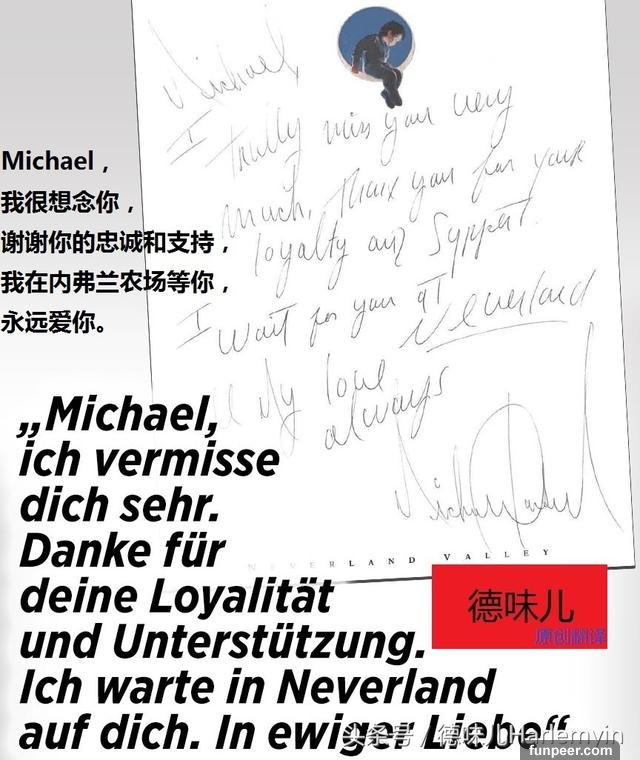 Michael,
I trully miss you very
much, Thank you for your
loyalty and Support.
I Wait for you at
Neverland
All My love
always
Michael Jackson
NEVERLAND VALLEY
Michael，
我很想念你，
谢谢你的忠诚和支持，
我在内弗兰农场等你，
永远爱你。
„Michael,
ich vermisse
dich sehr.
Danke für
deine Loyalität
und Unterstützung.
Ich warte in Neverland
auf dich. In ewiger Liebe“
德味儿
原创翻译
头条号 / 德味儿Harlemyin
funpeer.com